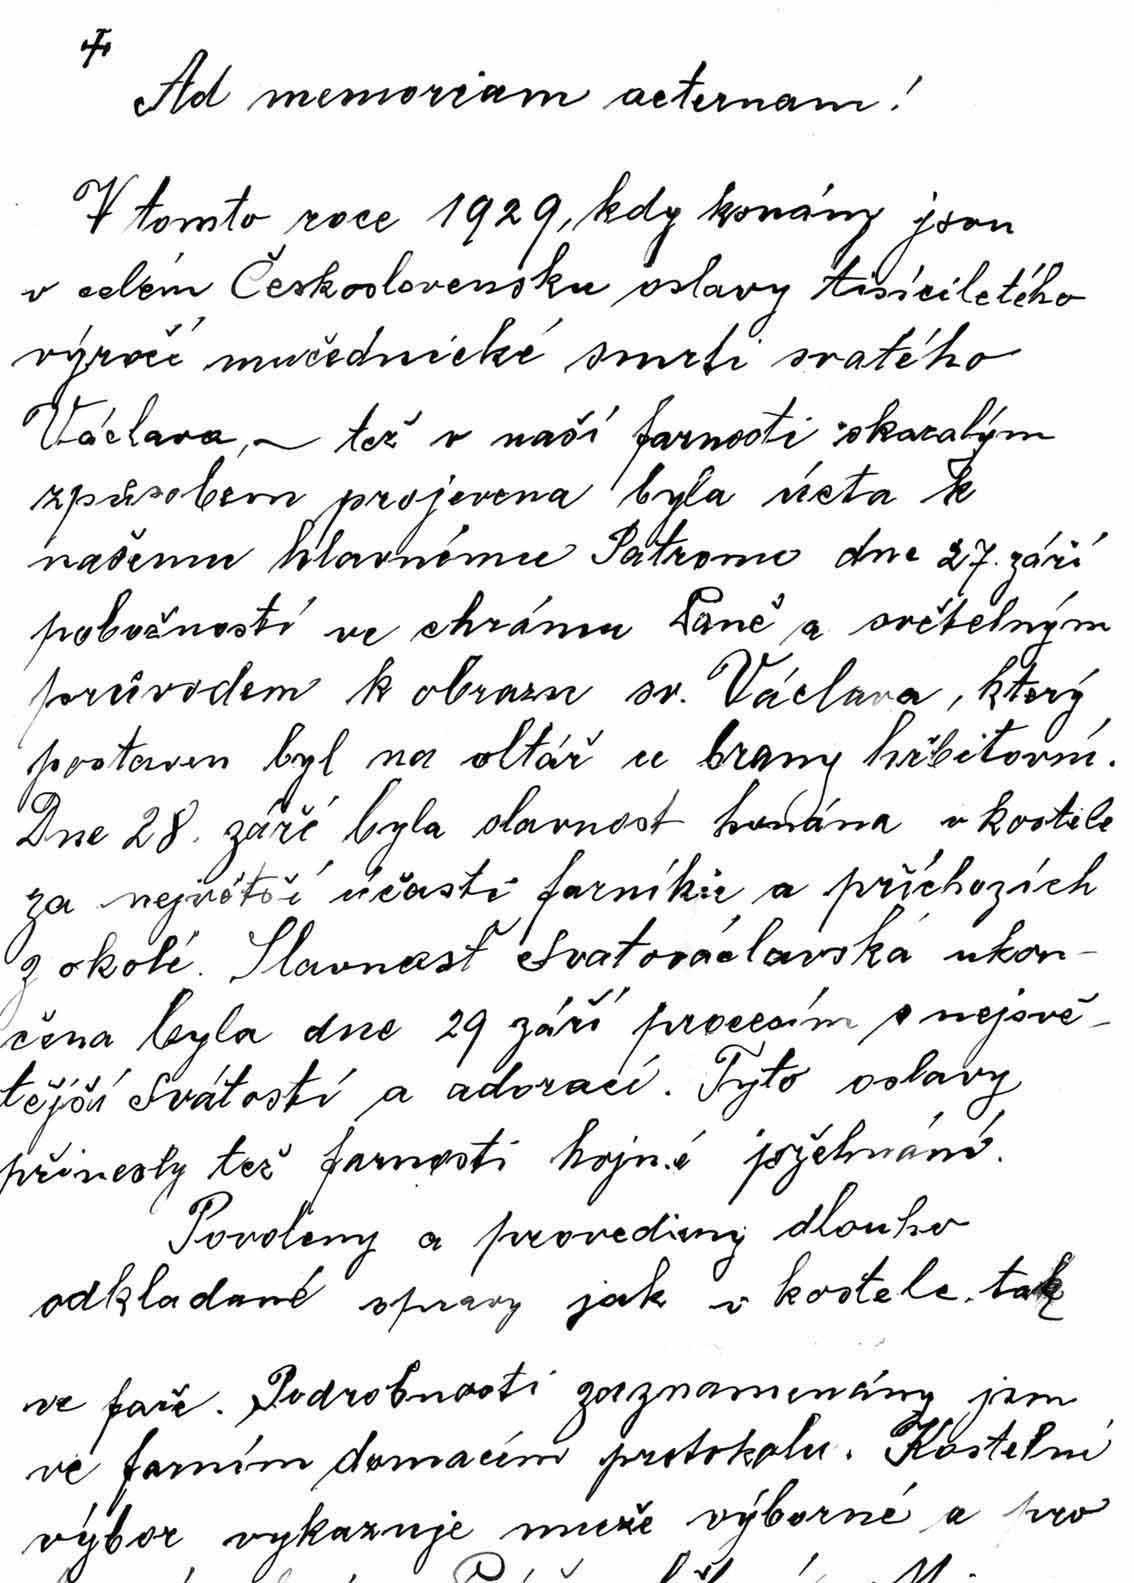 Ad memoriam aeternam!
V tomto roce 1929, kdy konány jsou
v celém Československu oslavy tisíciletého
výročí mučednické smrti svatého
Václava, ~ též v naší farnosti okázalým
způsobem projevena byla úcta k
našemu hlavnímu Patronu dne 27. září
pobožností ve chrámu Páně a světelným
průvodem k obrazu sv. Václava, který
postaven byl na oltář u brány hřbitovní.
Dne 28. září byla slavnost konána v kostele
za největší účasti farníků a příchozích
z okolí. Slavnost Svatováclavská ukon-
čena byla dne 29 září procesím s nejsvě-
tější Svátostí a adorací. Tyto oslavy
přinesly též farnosti hojné požehnání.
Povoleny a provedeny dlouho
odkládané opravy jak v kostele, tak
ve faře. Podrobnosti zaznamenány jsou
ve farním domácím protokolu. Kostelní
výbor vykazuje muže výborné a pro